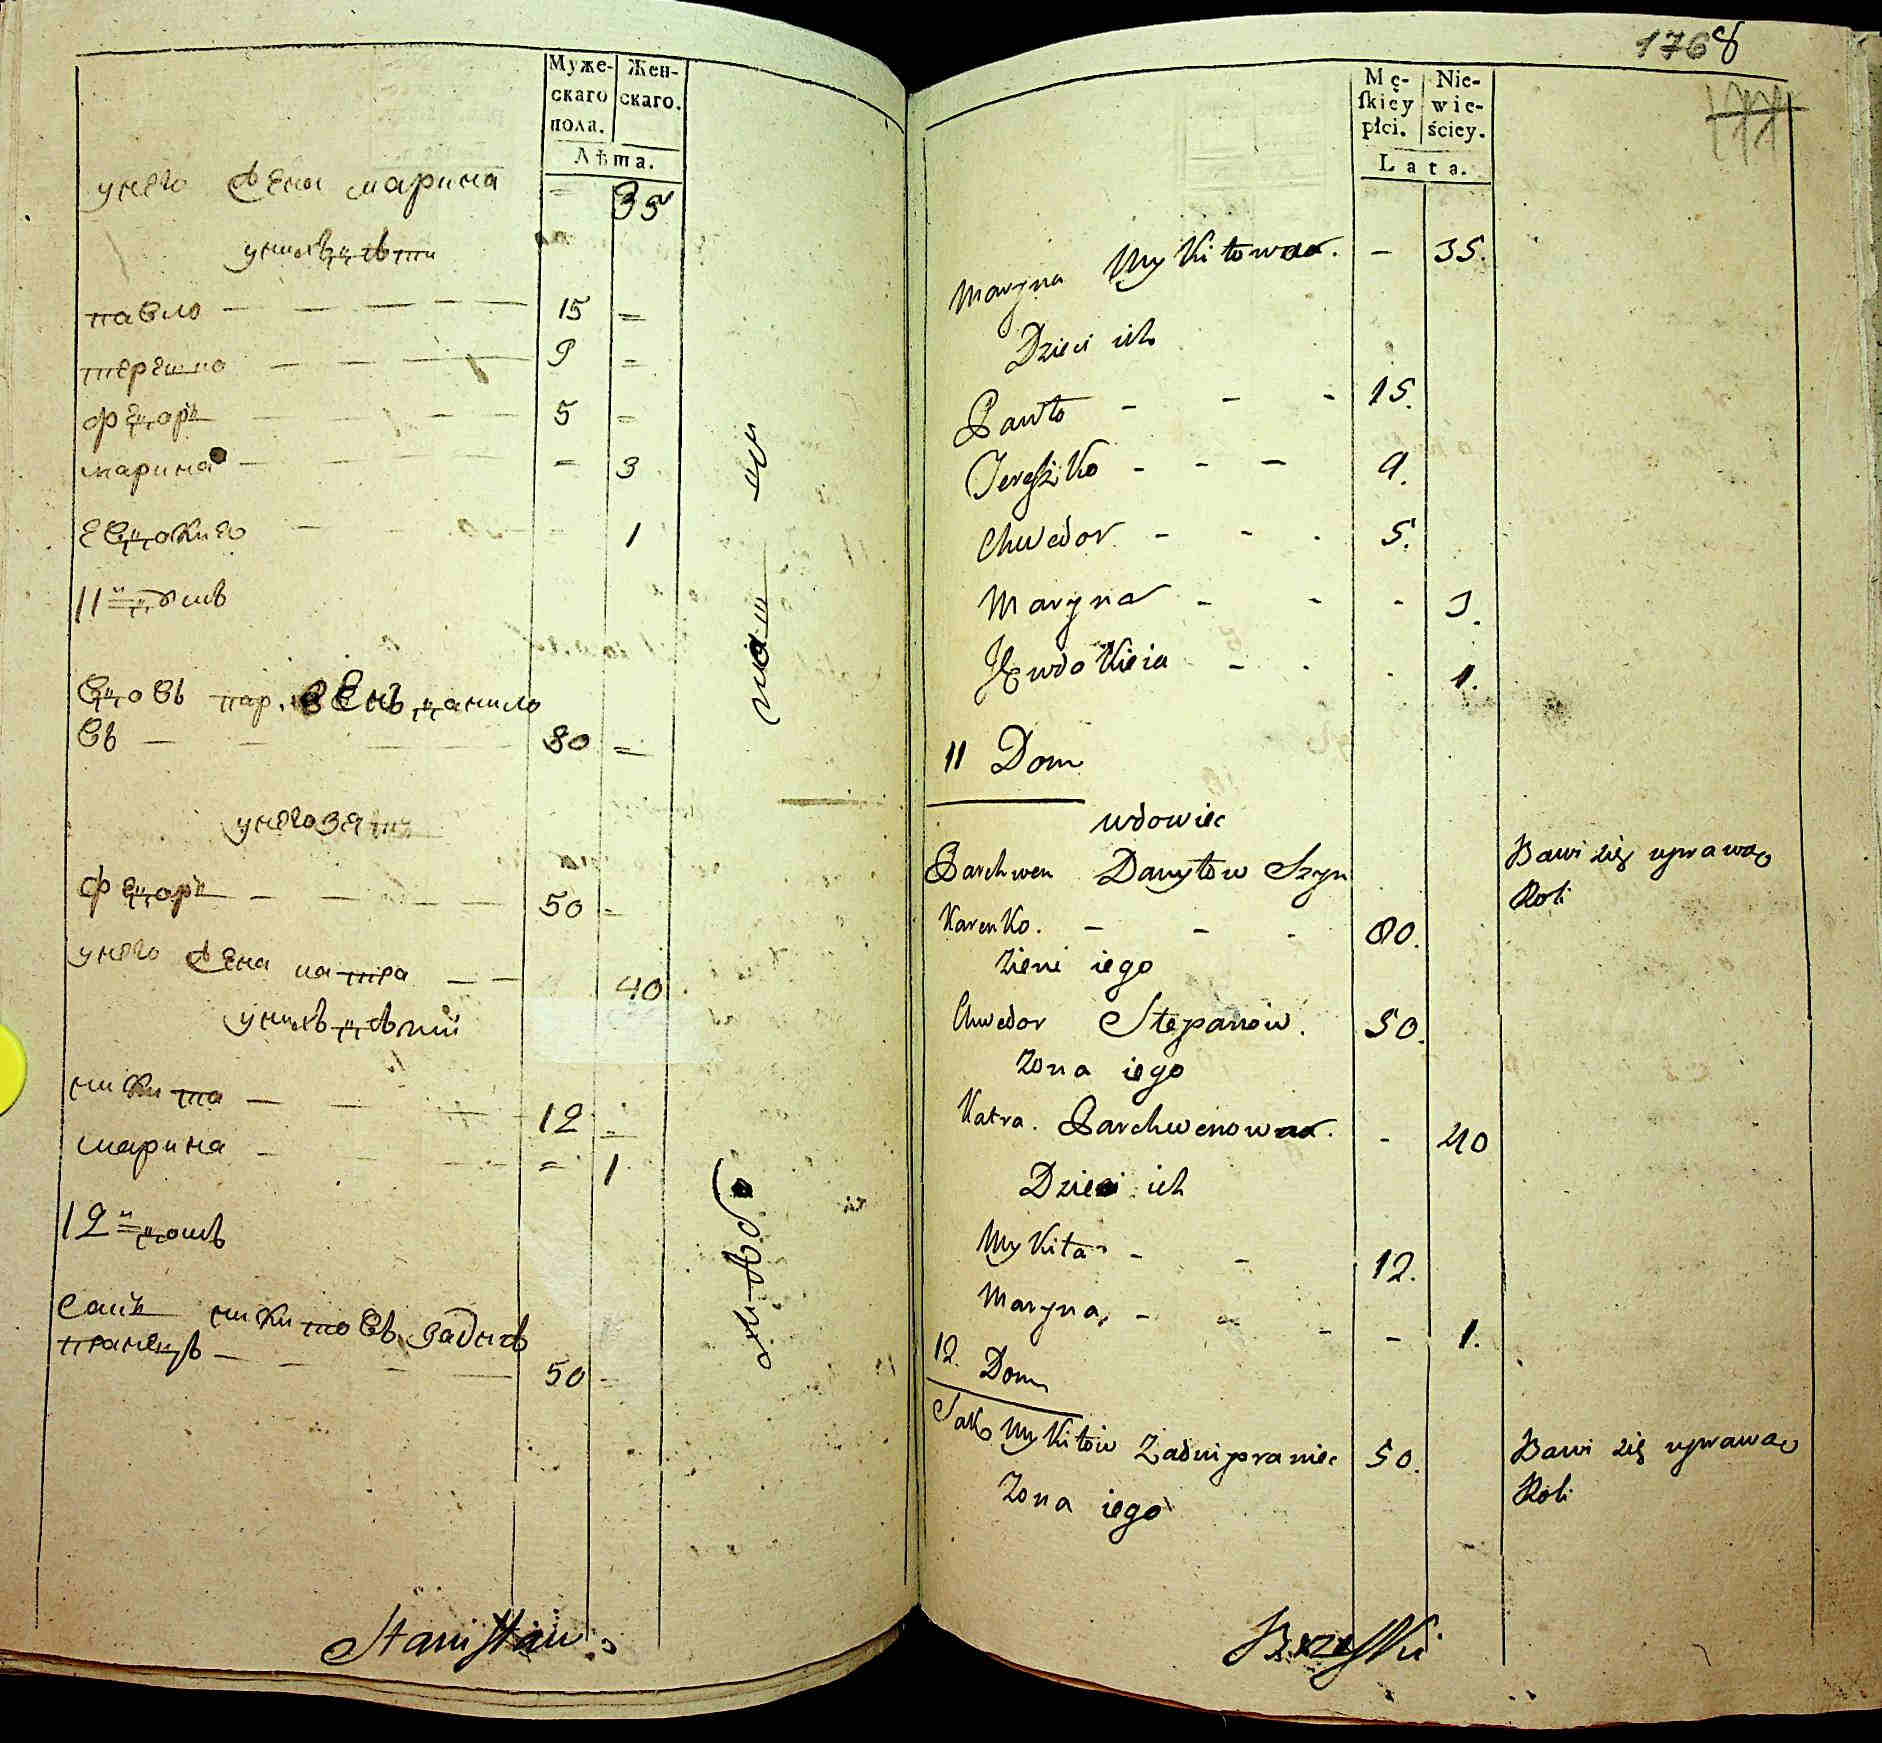 Муже-
скаго
пола.
Жен-
скаго.
Лѣта.
унего жена марина = 35
унихъ дѣти
павло 15 =
терешко 9 =
федоръ 5 =
марина = 3
евдокиея = 1
11й домъ
вдовъ пар. венъ данило
въ 80 =
унего зять
федоръ 50 =
унего жена катра 40
унихъ дѣтий
никита 12 =
марина = 1
12й домъ
сакъ никитовъ задне
пранецъ 50 =
Stanisław
1768
Mę-
ſkiey
płci.
Nie-
wie-
ściey.
Lata.
Maryna Mykitowna. - 35.
Dzieci ich
Pawło - - - 15.
Tereszko - - - 9.
Chwedor - - - 5.
Maryna - - - 3.
Jewdokieia - - - 1.
11 Dom
wdowiec
Parchwen Danyłow Szyn
karenko. - - - 80.
Bawi się uprawą
Roli
Zienć iego
Chwedor Stepanow. 50.
Zona iego
Katra. Parchwenowna. - 40
Dzieci ich
Mykita - - 12.
Maryna - - - - 1.
12. Dom
Sak Mykitow Zadnipraniec 50.
Bawi się uprawą
Roli
Zona iego
Brzeski